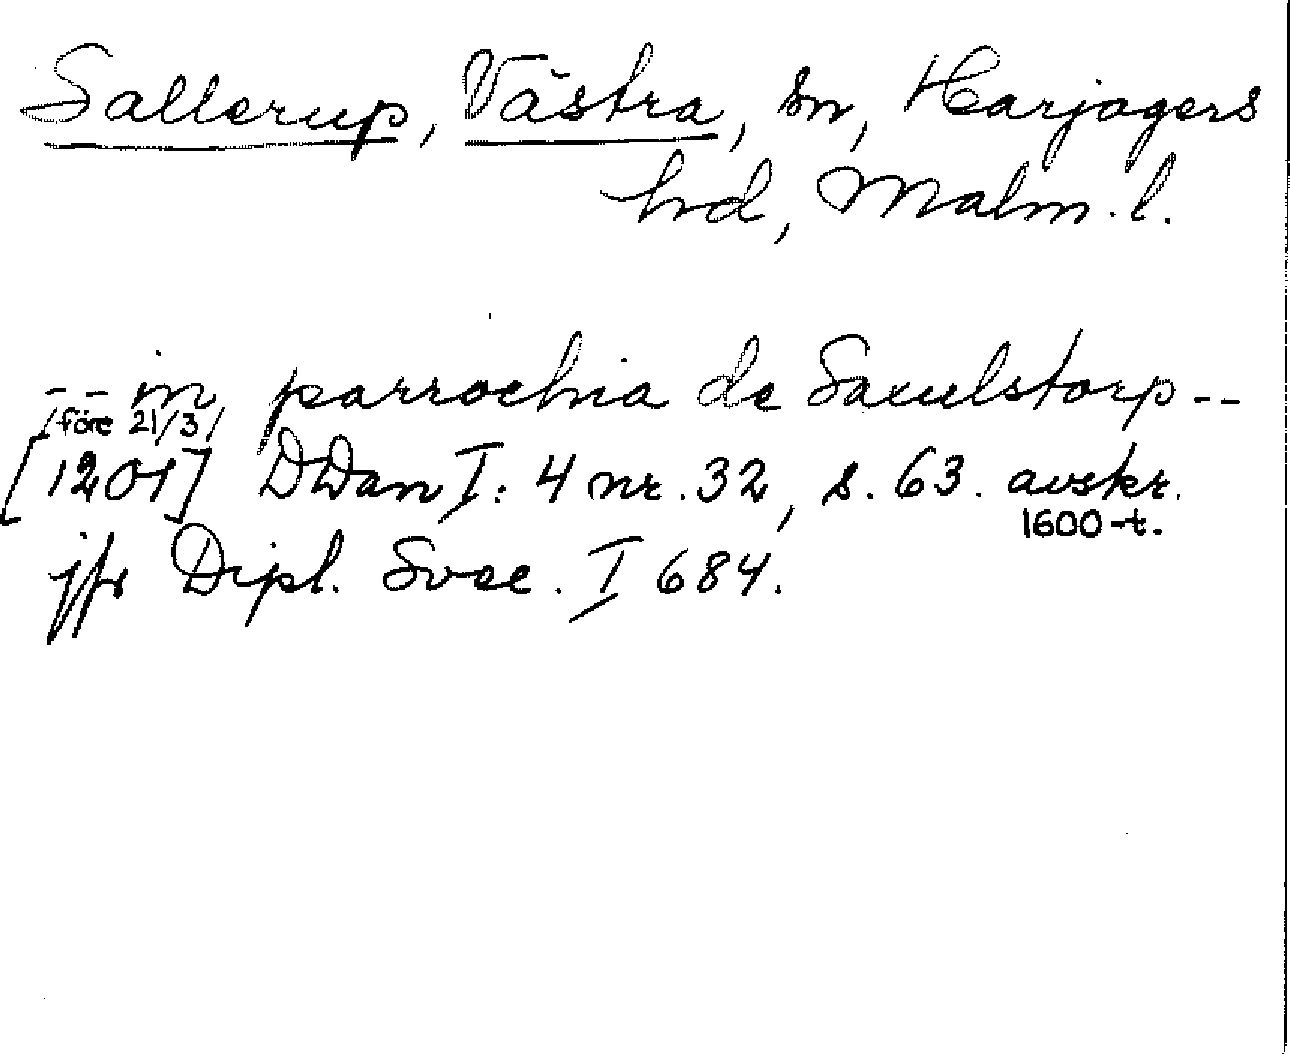 Sallerup, Västra, sn, Harjagers
hrd, Malm. l.
-- in parrochia de Saxulstorp --
/före 21/3/
[1201] DDan I: 4 nr. 32, s. 63. avskr.
1600-t.
jfr Dipl. Svec. I 684.